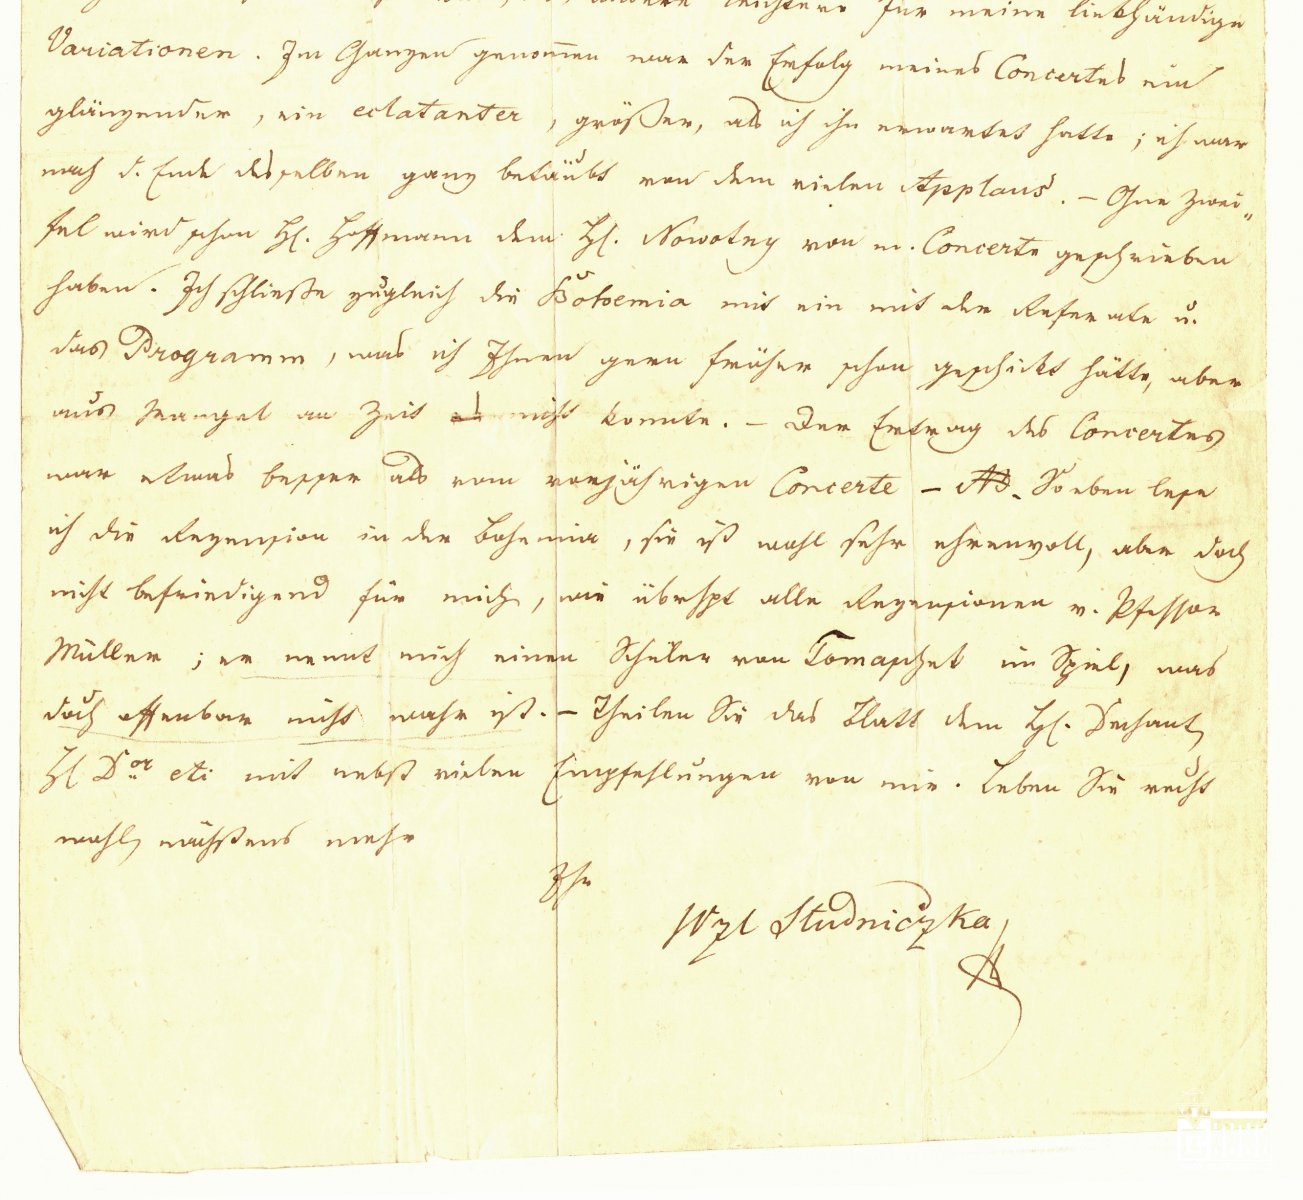 andere leichtere für meine linkhändige
Variationen. Im Ganzen genom̅en war der Erfolg meines Concertes ein
glänzender, ein eclatanter, größer, als ich ihn erwartet hatte; ich war
nach d. Ende desselben ganz betäubt von dem vielen Applaus. – Ohne Zwei„
fel wird schon H. Hoffmann dem H. Nowotny von m. Concerte geschrieben
haben. Ich schließe zugleich die Bohemia mit ein mit dem Referate u.
das Programm, was ich Ihnen gern früher schon geschickt hätte, aber
aus Mangel an Zeit nicht konnte. – Der Ertrag des Concertes
war etwas besser als vom vorjährigen Concerte – Soeben lese
ich die Rezension in der Bohemia, sie ist wohl sehr ehrenvoll, aber doch
nicht befriedigend für mich, wie übrhpt alle Rezensionen v. Pfessor
Müller; er nennt mich einen Schüler von Tomaschek im Spiel, was
doch offenbar nicht wahr ist. – Theilen Sie das Blatt dem H. Dechant,
H D.or etc mit nebst vielen Empfehlungen von mir. Leben Sie recht
wohl, nächstens mehr
Ihr
Wzl Studniczka